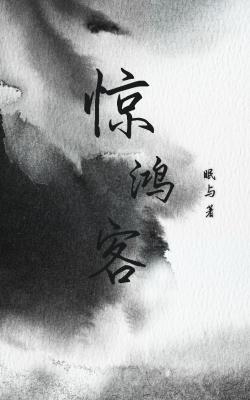 惊鸿客
眠与 著